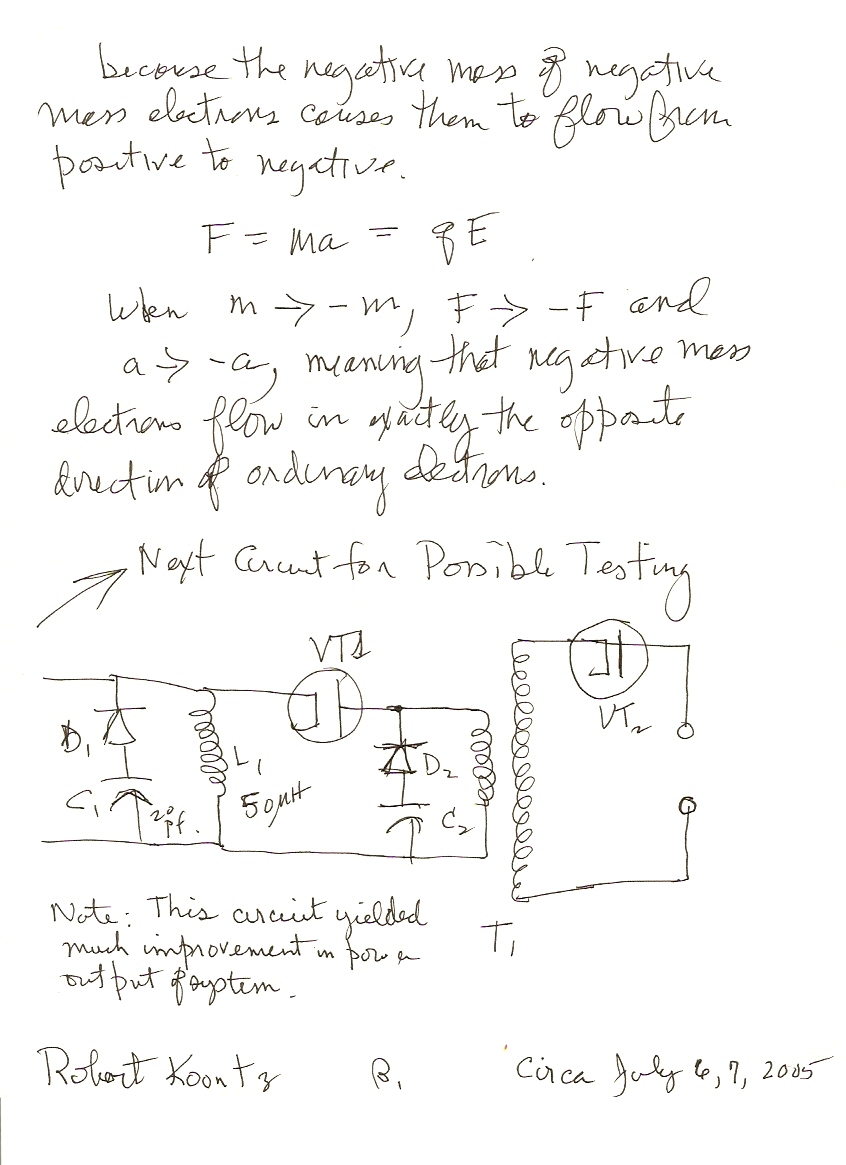 because the negative mass of negative
mass electrons causes them to flow from
positive to negative.
F = ma = qE
When m → -m, F → -F and
a → -a, meaning that negative mass
electrons flow in exactly the opposite
direction of ordinary electrons.
Next Circuit for Possible Testing
VT1
VT2
D1
L1
50μH
C1
20
pf.
D2
C2
T1
Note: This circuit yielded
much improvement in power
output of system.
Robert Koontz B. Circa July 6, 7, 2005